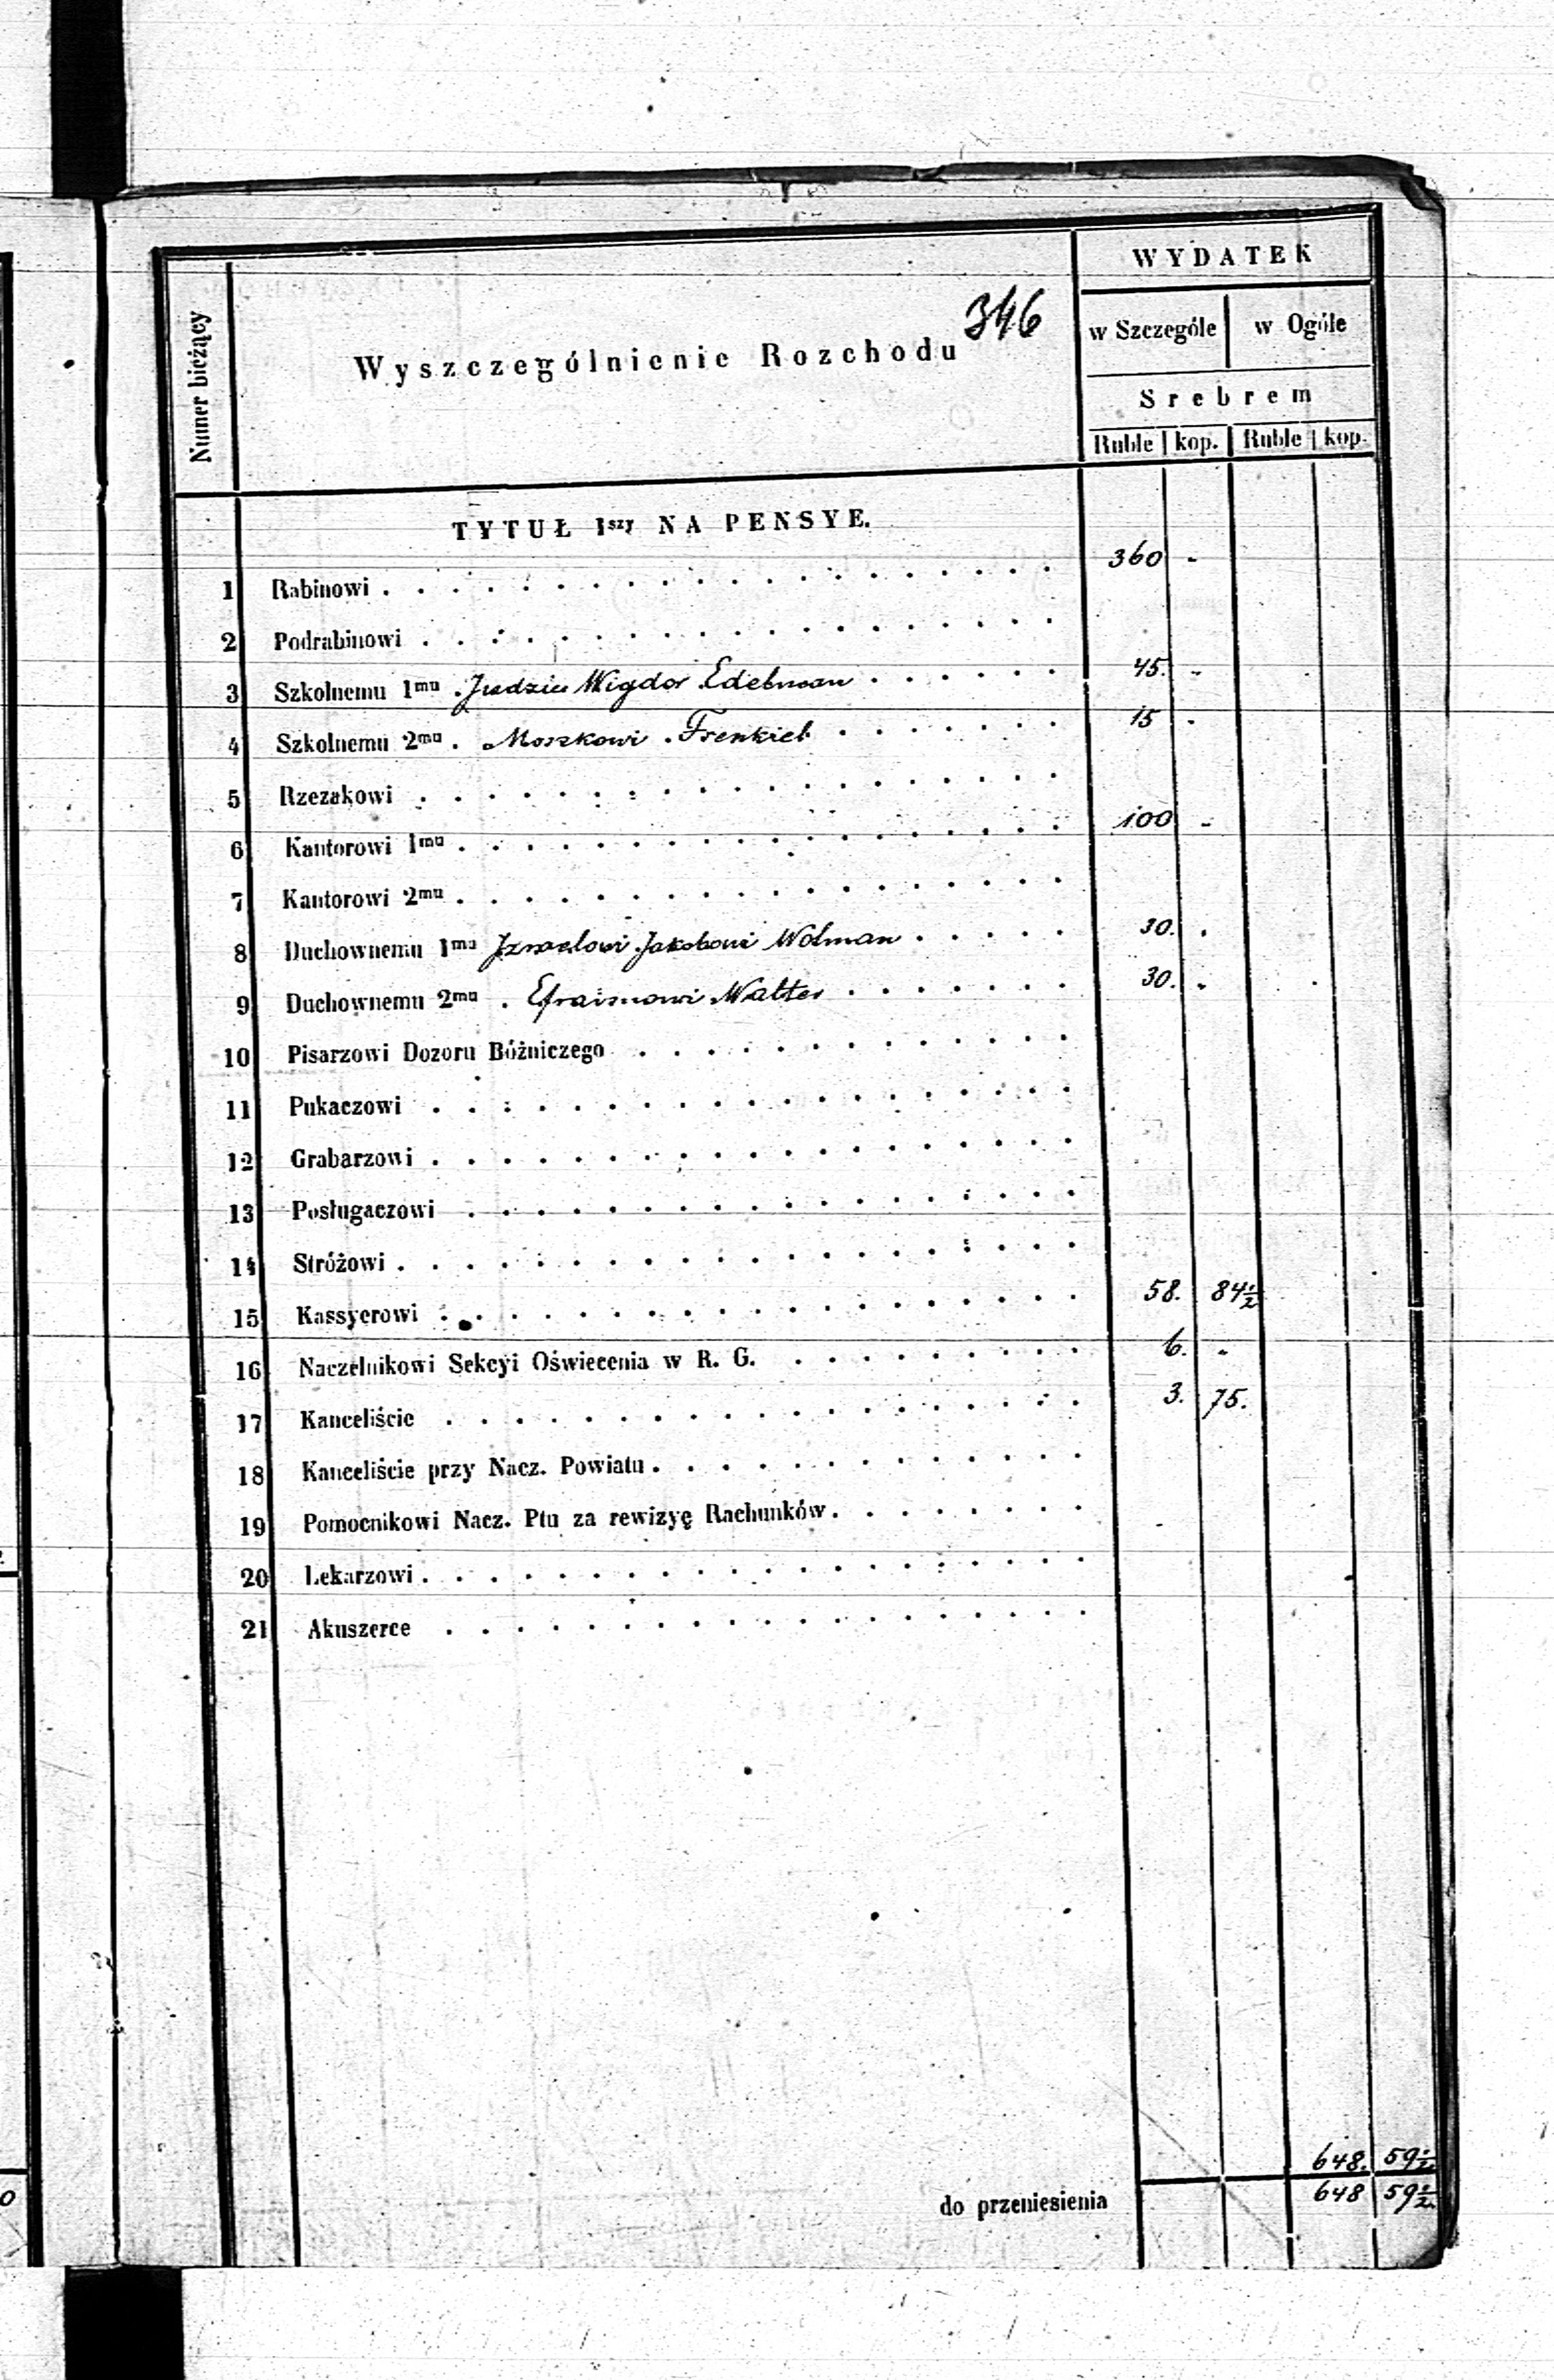 346
Numer bieżący
Wyszczególnienie Rozchodu
WYDATEK
w Szczególe w Ogóle
Srebrem
Ruble kop. Ruble kop.
TYTUŁ 1szy NA PENSYE.
1 Rabinowi . . . 360 -
2 Podrabinowi . . .
3 Szkolnemu 1mu Judzie Wigdor Edelman . . . 45. -
4 Szkolnemu 2mu . Moszkowi Frenkiel . . . 15 -
5 Rzezakowi . . .
6 Kantorowi 1mu . . . 100 -
7 Kantorowi 2mu . . .
8 Duchownemu 1mu Izraelowi Jakobowi Wolman . . . 30. -
9 Duchownemu 2mu . Efraimowi Walter . . . 30. -
10 Pisarzowi Dozoru Bóżniczego . . .
11 Pukaczowi . . .
12 Grabarzowi . . .
13 Posługaczowi . . .
14 Stróżowi . . .
15 Kassyerowi . . . 58. 84½
16 Naczelnikowi Sekcyi Oświecenia w R. G. . . . 6. -
17 Kanceliście . . . 3. 75.
18 Kanceliście przy Nacz. Powiatu . . .
19 Pomocnikowi Nacz. Ptu za rewizyę Rachunków . . .
20 Lekarzowi . . .
21 Akuszerce . . .
648. 59½
do przeniesienia 648 59½